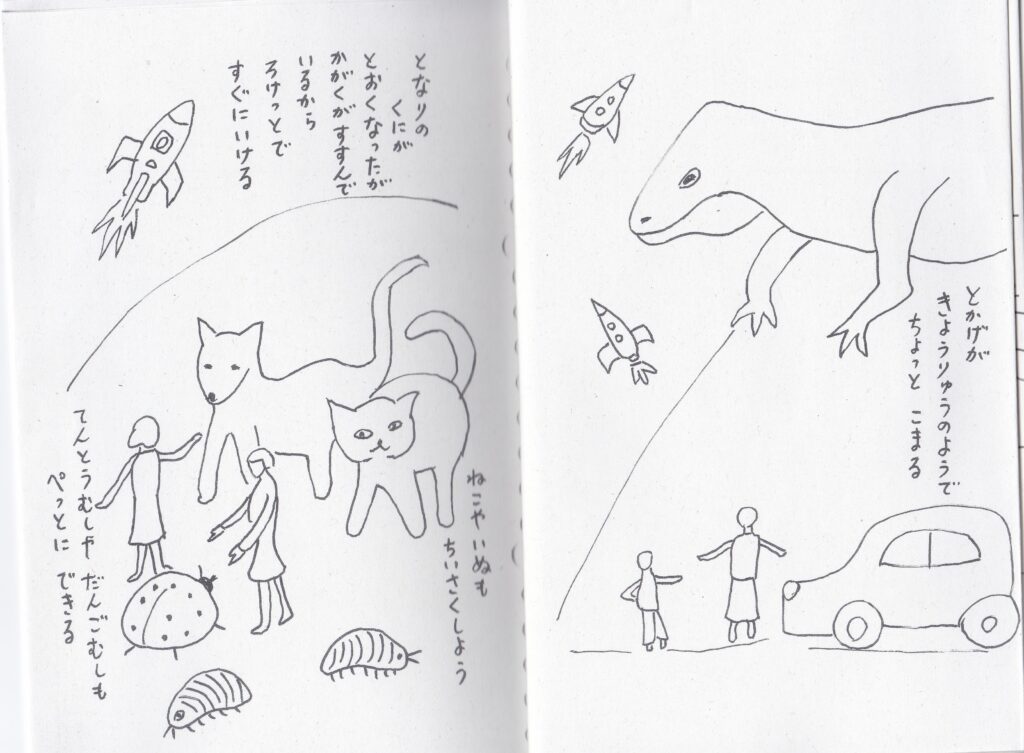 となりの
くにが
とおくなったが
かがくがすすんで
いるから
ろけっとで
すぐにいける
ねこやいぬも
ちいさくしよう
てんとうむしや だんごむしも
ぺっとに できる
とかげが
きょうりゅうのようで
ちょっと こまる